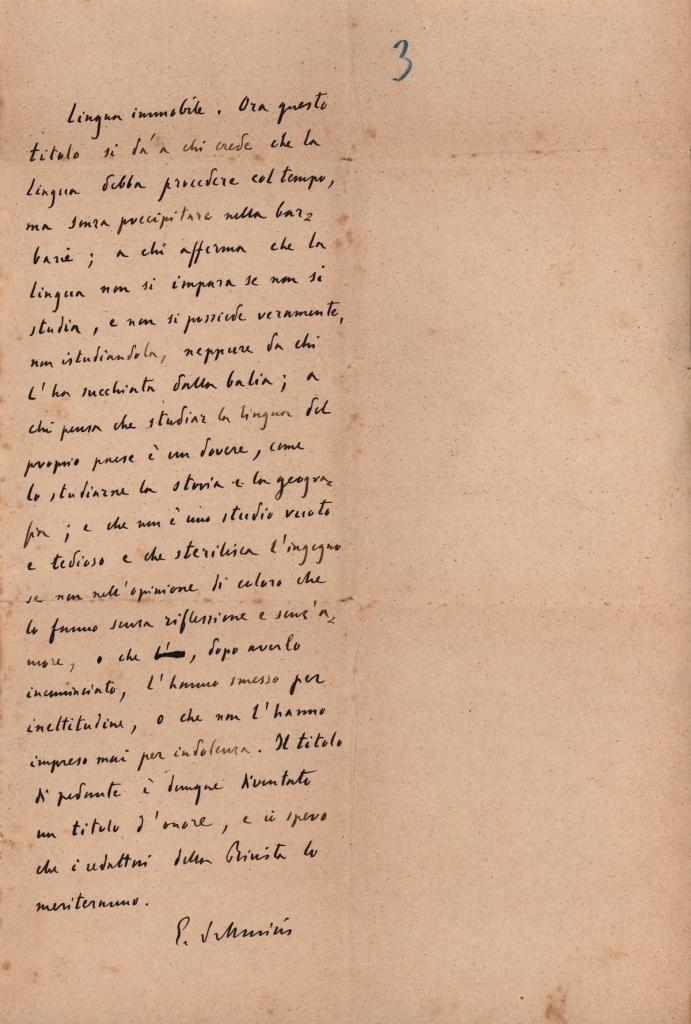 3
lingua immobile. Ora questo
titolo si dà a chi crede che la
lingua debba procedere col tempo,
ma senza precipitare nella bar=
barie; a chi afferma che la
lingua non si impara se non si
studia, e non si possiede veramente,
non istudiandola, neppure da chi
l'ha succhiata dalla balia; a
chi pensa che studiar la lingua del
proprio paese è un dovere, come
lo studiarne la storia e la geogra=
fia; e che non è uno studio vuoto
e tedioso e che sterilisca l'ingegno
se non nell'opinione di coloro che
lo fanno senza riflessione e senz'a=
more, o che, dopo averlo
incominciato, l'hanno smesso per
inettitudine, o che non l'hanno
impreso mai per indolenza. Il titolo
di pedante è dunque diventato
un titolo d'onore, e io spero
che i redattori della Rivista lo
meriteranno.
E. De Amicis